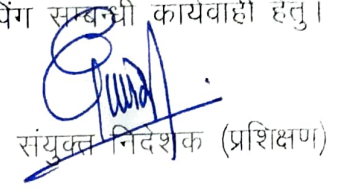 सम्बन्धी कार्यवाही हेतु।
संयुक्त निदेशक (प्रशिक्षण)